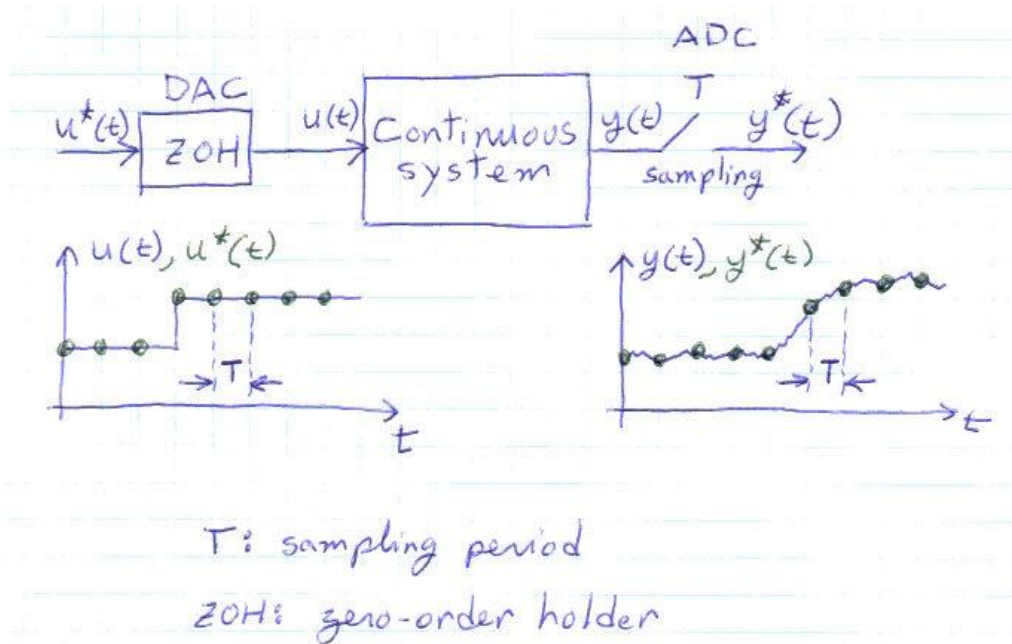 ADC
DAC
u*(t)
ZOH
u(t)
Continuous
system
y(t)
T
y*(t)
sampling
u(t), u*(t)
T
t
y(t), y*(t)
T
t
T: sampling period
ZOH: zero-order holder